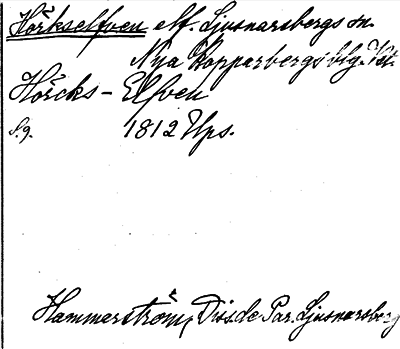 Hörkselfven elf. Ljusnarsbergs sn.
Nya Kopparbergs blg. Vstm.
Hörcks - Elfven
S. 9. 1812 Ups.
Hammerström, Diss. de Par. Ljusnarsberg